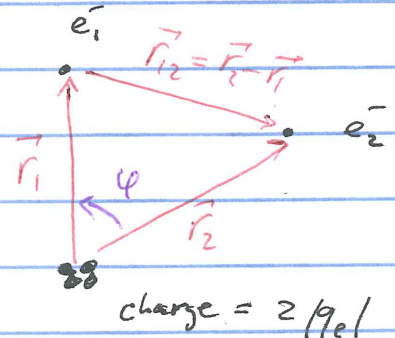 e₁⁻
r⃗₁₂ = r⃗₂ - r⃗₁
e₂⁻
r⃗₁
φ
r⃗₂
charge = 2|qₑ|